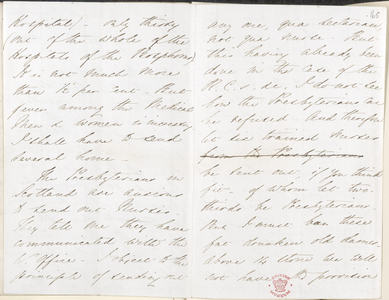 Hospital) - only thirty
one of the whole of the
Hospitals of the Bosphorus)
It is not much more
than 16 per cent. But
even among the
Men & women
I shall have to send
several home -
The Presbyterians in
Scotland are anxious
to send out Nurses.
They tell me they have
communicated with the
W. Office - I object to the
principle of sending out
66
any one, qua sectarian,
not qua nurse. But
this having already been
done in the case of the
R.C.s &c, I do not see
how the Presbyterians can
be refused. And therefore
let six trained Nurses
from the Presbyterians
be sent out, if you think
fit - of whom let two
thirds be Presbyterians.
But I must bar these
fat drunken old dames
above 14 stone we will
not have - the provision